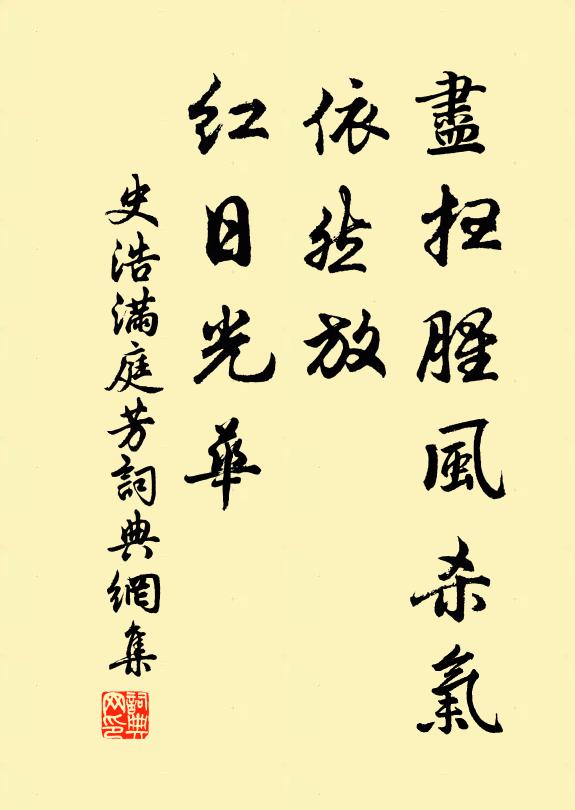 盡掃腥風杀氣
依然放
紅日光華
史浩滿庭芳詞典網集
詞典网印